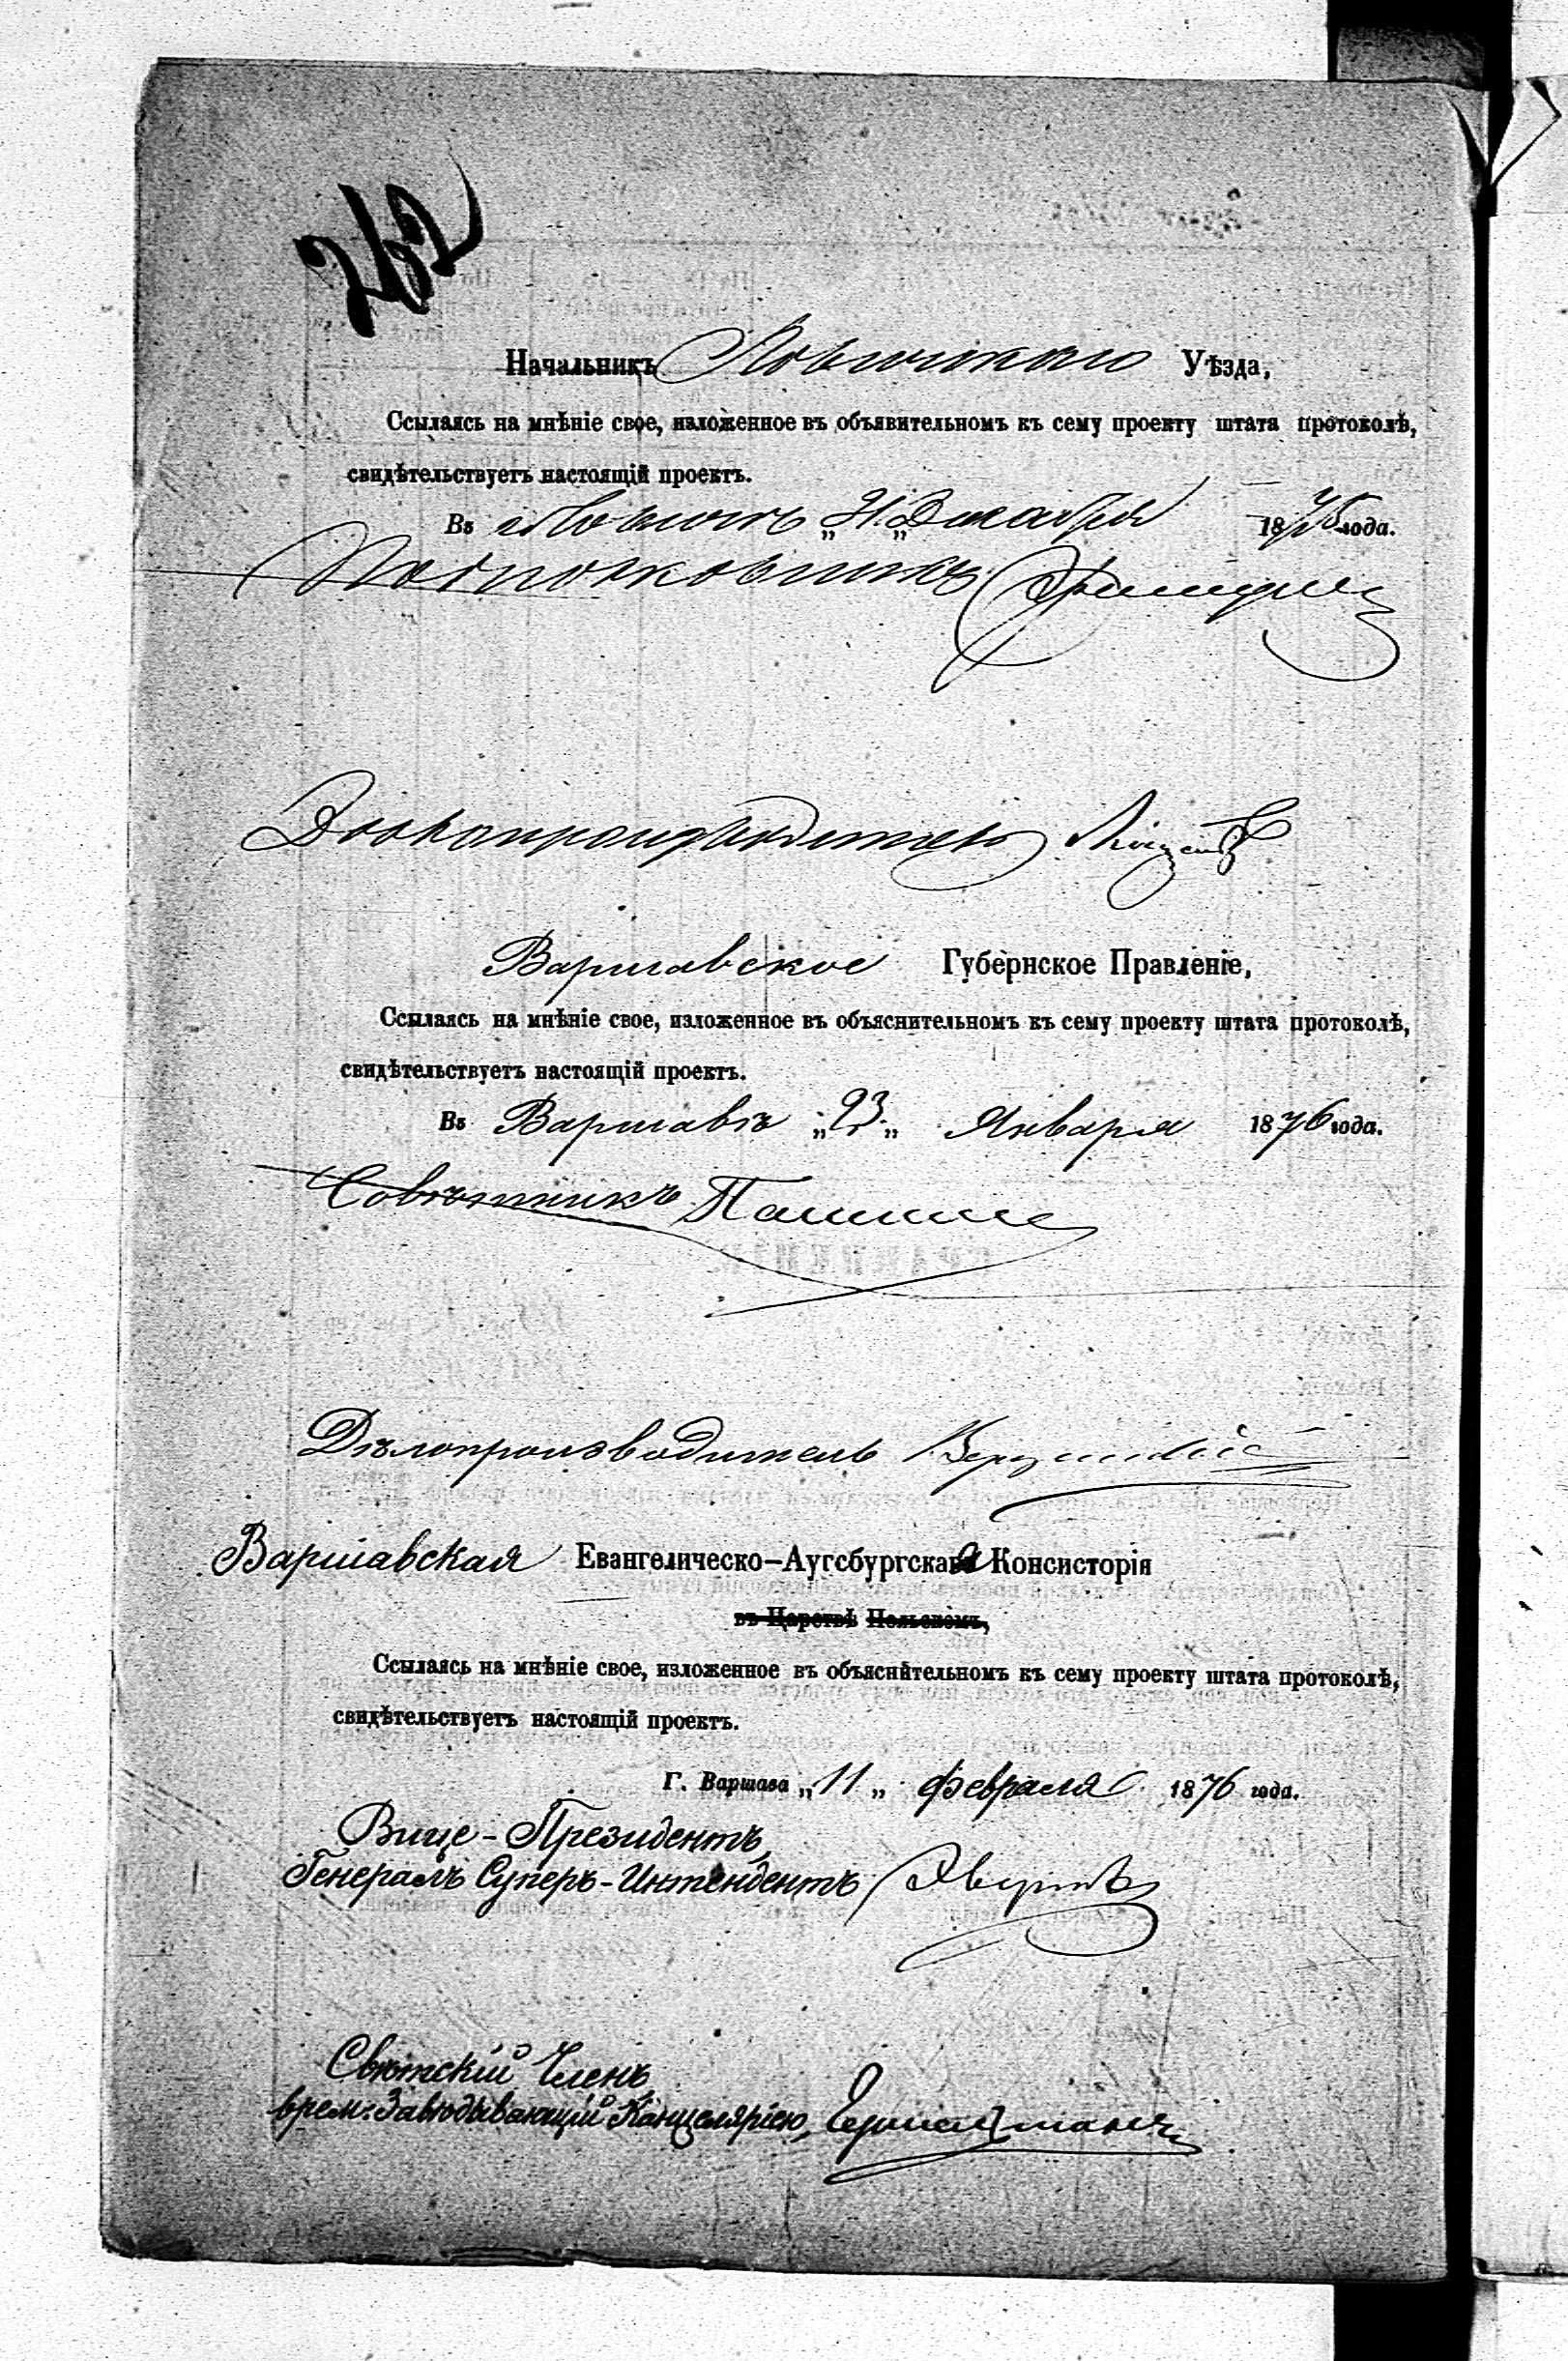 262
Начальникъ Ловичскаго Уѣзда,
Ссылаясь на мнѣніе свое, изложенное въ объявительномъ къ сему проекту штата протоколѣ,
свидѣтельствуетъ настоящій проектъ.
Въ Ловичѣ „31„ Декабря 1875 года.
Подполковникъ
Дѣлопроизводитель
Варшавское Губернское Правленіе,
Ссылаясь на мнѣніе свое, изложенное въ объяснительномъ къ сему проекту штата протоколѣ,
свидѣтельствуетъ настоящій проектъ.
Въ Варшавѣ „23„ Января 1876 года.
Совѣтникъ
Дѣлопроизводитель
Варшавская Евангелическо-Аугсбургская Консисторія
въ Царствѣ Польскомъ,
Ссылаясь на мнѣніе свое, изложенное въ объяснительномъ къ сему проекту штата протоколѣ,
свидѣтельствуетъ настоящій проектъ.
Г. Варшава „11„ Февраля 1876 года.
Вице-Президентъ,
Генералъ Суперъ-Интендентъ
Свѣтскій Членъ,
врем. Завѣдывающій Канцеляріею,